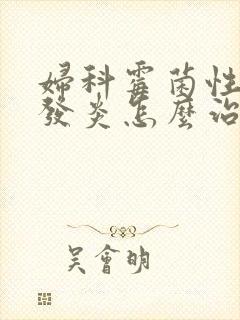 婦科霉菌性
發炎怎麼治
吳會明